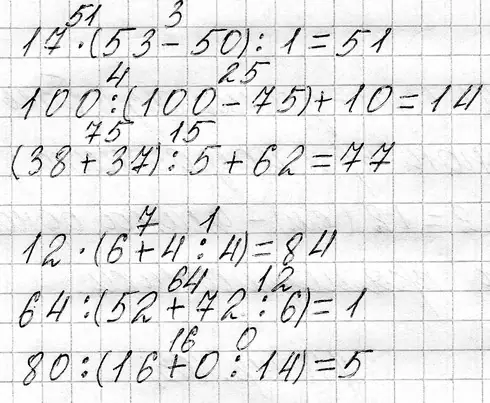 51 3
17 · (53 - 50) : 1 = 51
4 25
100 : (100 - 75) + 10 = 14
75 15
(38 + 37) : 5 + 62 = 77
7 1
12 · (6 + 4 : 4) = 84
64 12
64 : (52 + 72 : 6) = 1
16 0
80 : (16 + 0 : 14) = 5